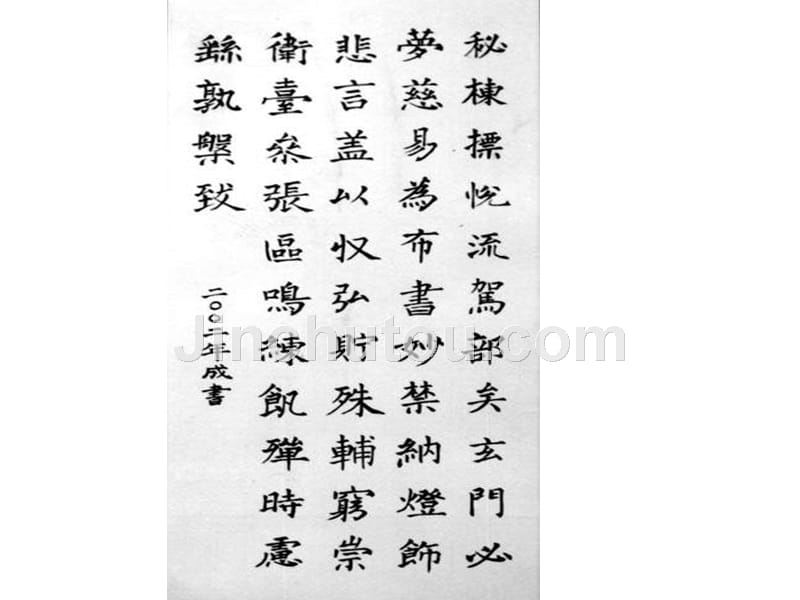 秘棟摽悦流駕部矣玄門必
夢慈易為布書妙禁納燈飾
悲言盖以収弘貯殊輔窮崇
衛臺叅張區鳴練飢殫時慮
繇孰槃致
二〇〇二年成書
Jinchutou.com